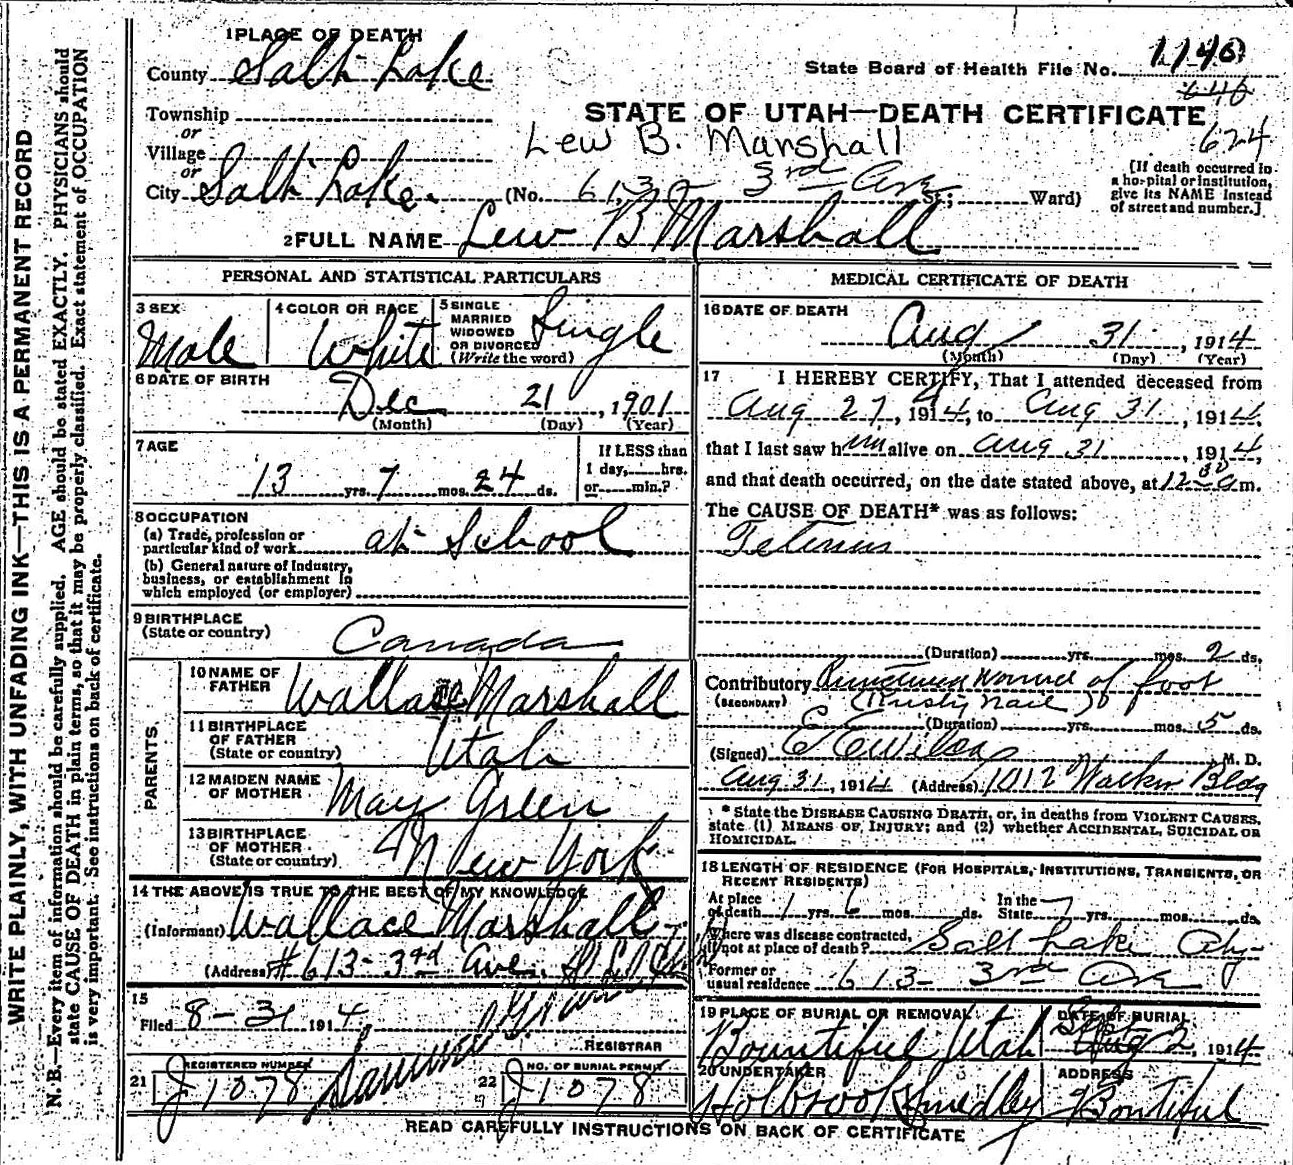 WRITE PLAINLY, WITH UNFADING INK—THIS IS A PERMANENT RECORD
N. B.—Every item of information should be carefully supplied. AGE should be stated EXACTLY. PHYSICIANS should
state CAUSE OF DEATH in plain terms, so that it may be properly classified. Exact statement of OCCUPATION
is very important. See instructions on back of certificate.
1 PLACE OF DEATH
County Salt Lake
State Board of Health File No. 1140
646
Township
or
STATE OF UTAH—DEATH CERTIFICATE
Lew B. Marshall
624
Village
or
City Salt Lake. (No. 613 3rd Ave St.; Ward)
[If death occurred in
a hospital or institution,
give its NAME instead
of street and number.]
2 FULL NAME Lew B Marshall
PERSONAL AND STATISTICAL PARTICULARS
3 SEX
Male
4 COLOR OR RACE
White
5 SINGLE
MARRIED
WIDOWED
OR DIVORCED
(Write the word)
Single
6 DATE OF BIRTH
Dec 21, 1901
(Month) (Day) (Year)
7 AGE
13 yrs. 7 mos. 24 ds.
If LESS than
1 day, hrs.
or min.?
8 OCCUPATION
(a) Trade, profession or
particular kind of work at School
(b) General nature of Industry,
business, or establishment in
which employed (or employer)
9 BIRTHPLACE
(State or country) Canada
PARENTS.
10 NAME OF
FATHER Wallace Marshall
11 BIRTHPLACE
OF FATHER
(State or country) Utah
12 MAIDEN NAME
OF MOTHER May Green
13 BIRTHPLACE
OF MOTHER
(State or country) New York
14 THE ABOVE IS TRUE TO THE BEST OF MY KNOWLEDGE
(Informant) Wallace Marshall
(Address) # 613- 3rd Ave.
15
Filed 8-31 1914
REGISTRAR
21 REGISTERED NUMBER
J1078
22 NO. OF BURIAL PERMIT
J1078
MEDICAL CERTIFICATE OF DEATH
16 DATE OF DEATH
Aug 31, 1914
(Month) (Day) (Year)
17 I HEREBY CERTIFY, That I attended deceased from
Aug 27, 1914, to Aug 31, 1914,
that I last saw him alive on Aug 31, 1914,
and that death occurred, on the date stated above, at 12 30 a m.
The CAUSE OF DEATH* was as follows:
Tetanus
(Duration) yrs. mos. 2 ds.
Contributory Punctured Wound of foot
(SECONDARY) (Rusty Nail)
(Duration) yrs. mos. 5 ds.
(Signed) M. D.
Aug 31, 1914 (Address) 1012 Walker Bldg
* State the DISEASE CAUSING DEATH, or, in deaths from VIOLENT CAUSES,
state (1) MEANS OF INJURY; and (2) whether ACCIDENTAL, SUICIDAL OR
HOMICIDAL.
18 LENGTH OF RESIDENCE (FOR HOSPITALS, INSTITUTIONS, TRANSIENTS, OR
RECENT RESIDENTS)
At place
of death 1 yrs. 6 mos. ds.
In the
State 7 yrs. mos. ds.
Where was disease contracted,
if not at place of death? Salt Lake City
Former or
usual residence 613- 3rd Ave
19 PLACE OF BURIAL OR REMOVAL
Bountiful Utah
DATE OF BURIAL
Sept 2, 1914
20 UNDERTAKER
Holbrook Smedley
ADDRESS
Bontiful
READ CAREFULLY INSTRUCTIONS ON BACK OF CERTIFICATE